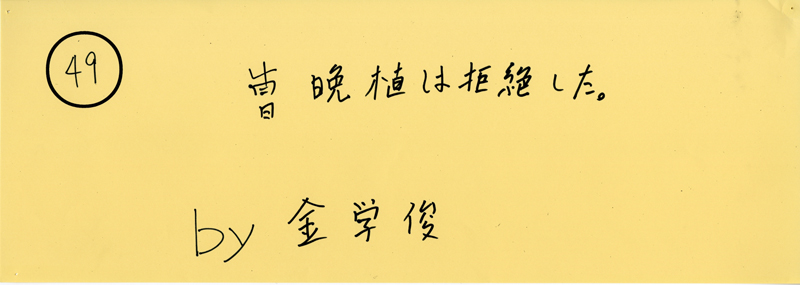 49
曺晩植は拒絶した。
by 金学俊